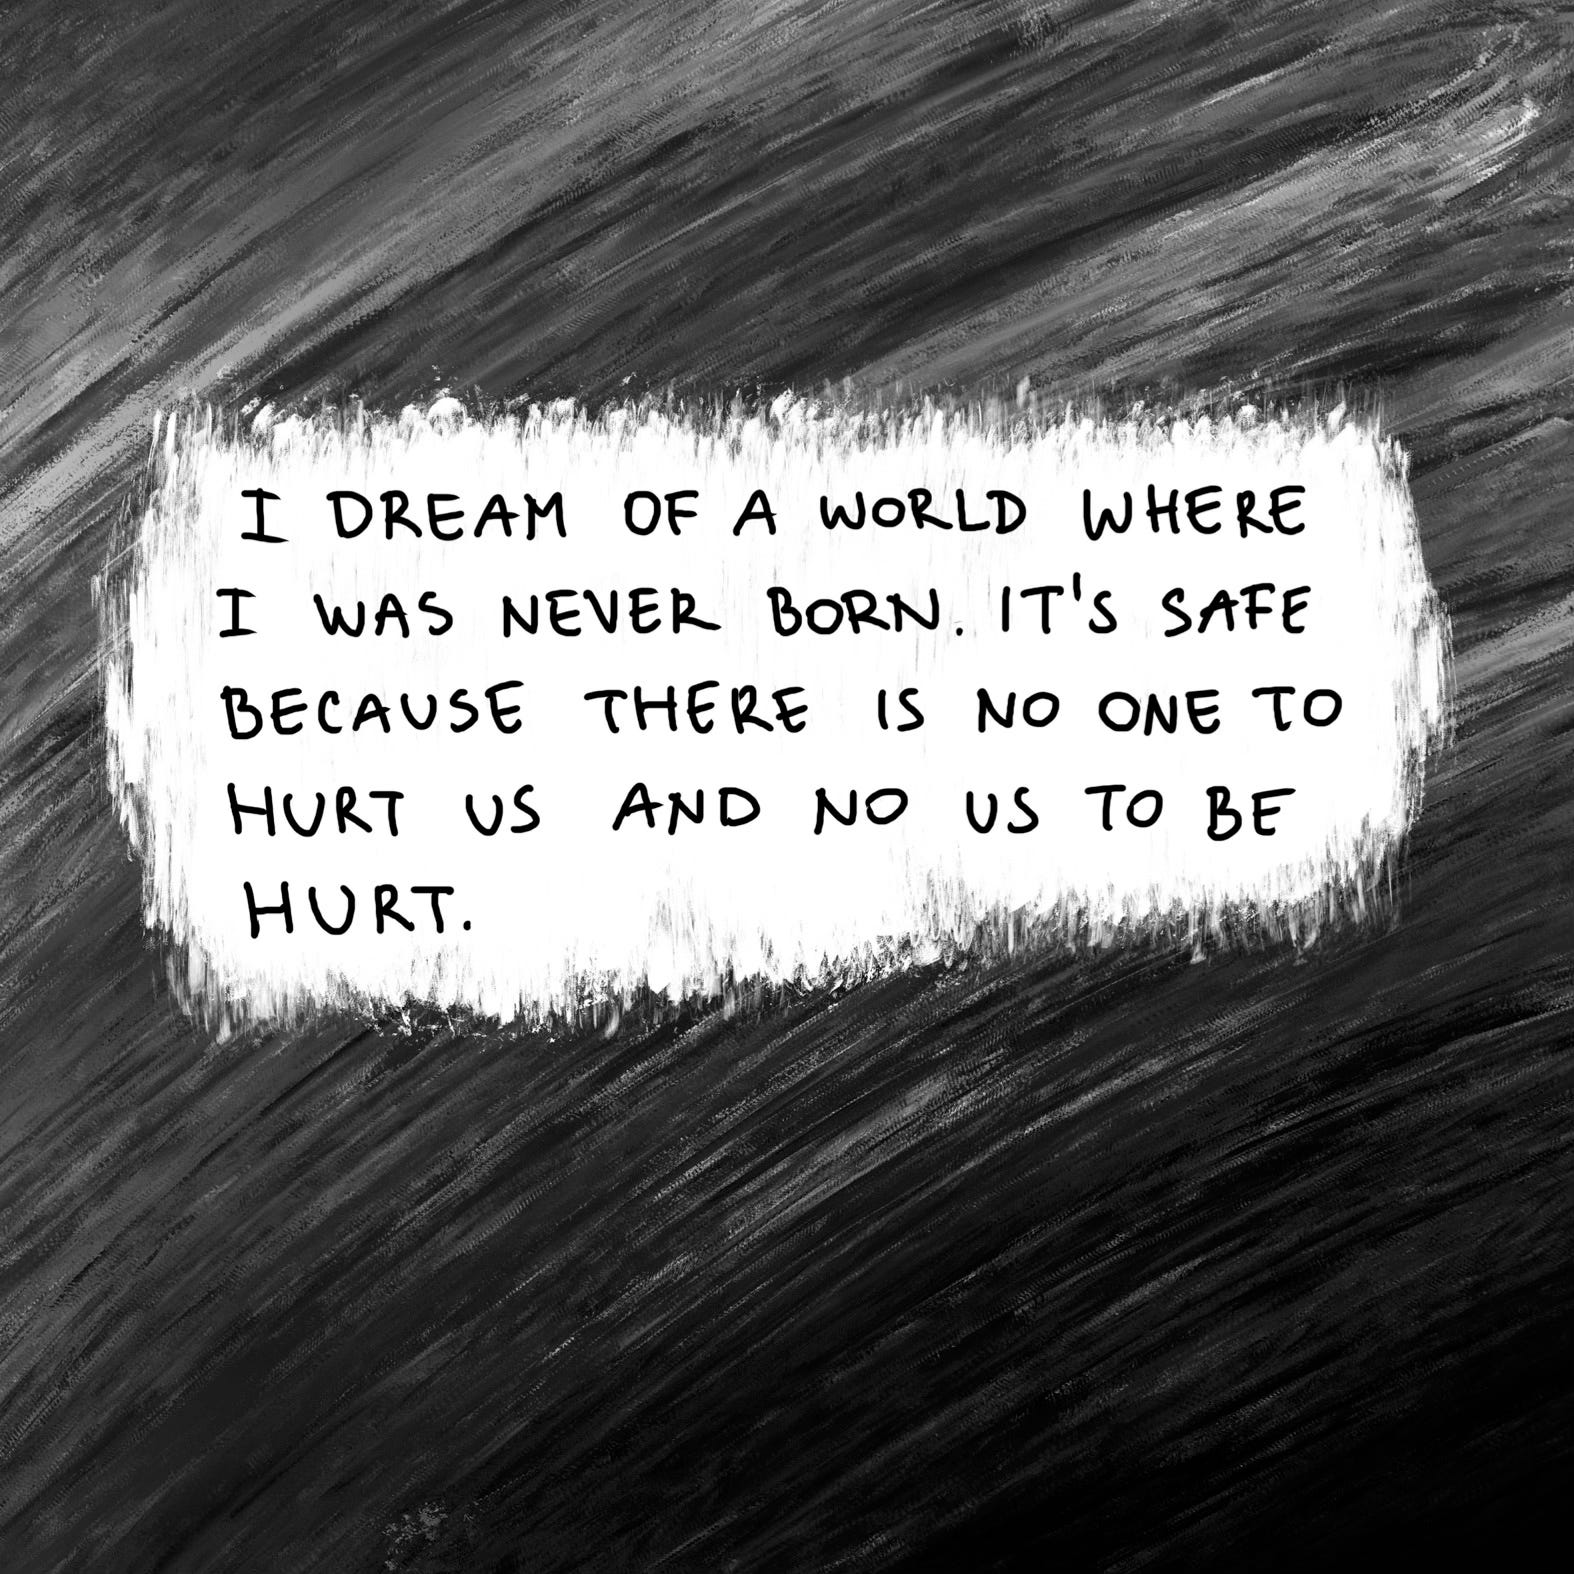 I DREAM OF A WORLD WHERE
I WAS NEVER BORN. IT'S SAFE
BECAUSE THERE IS NO ONE TO
HURT US AND NO US TO BE
HURT.